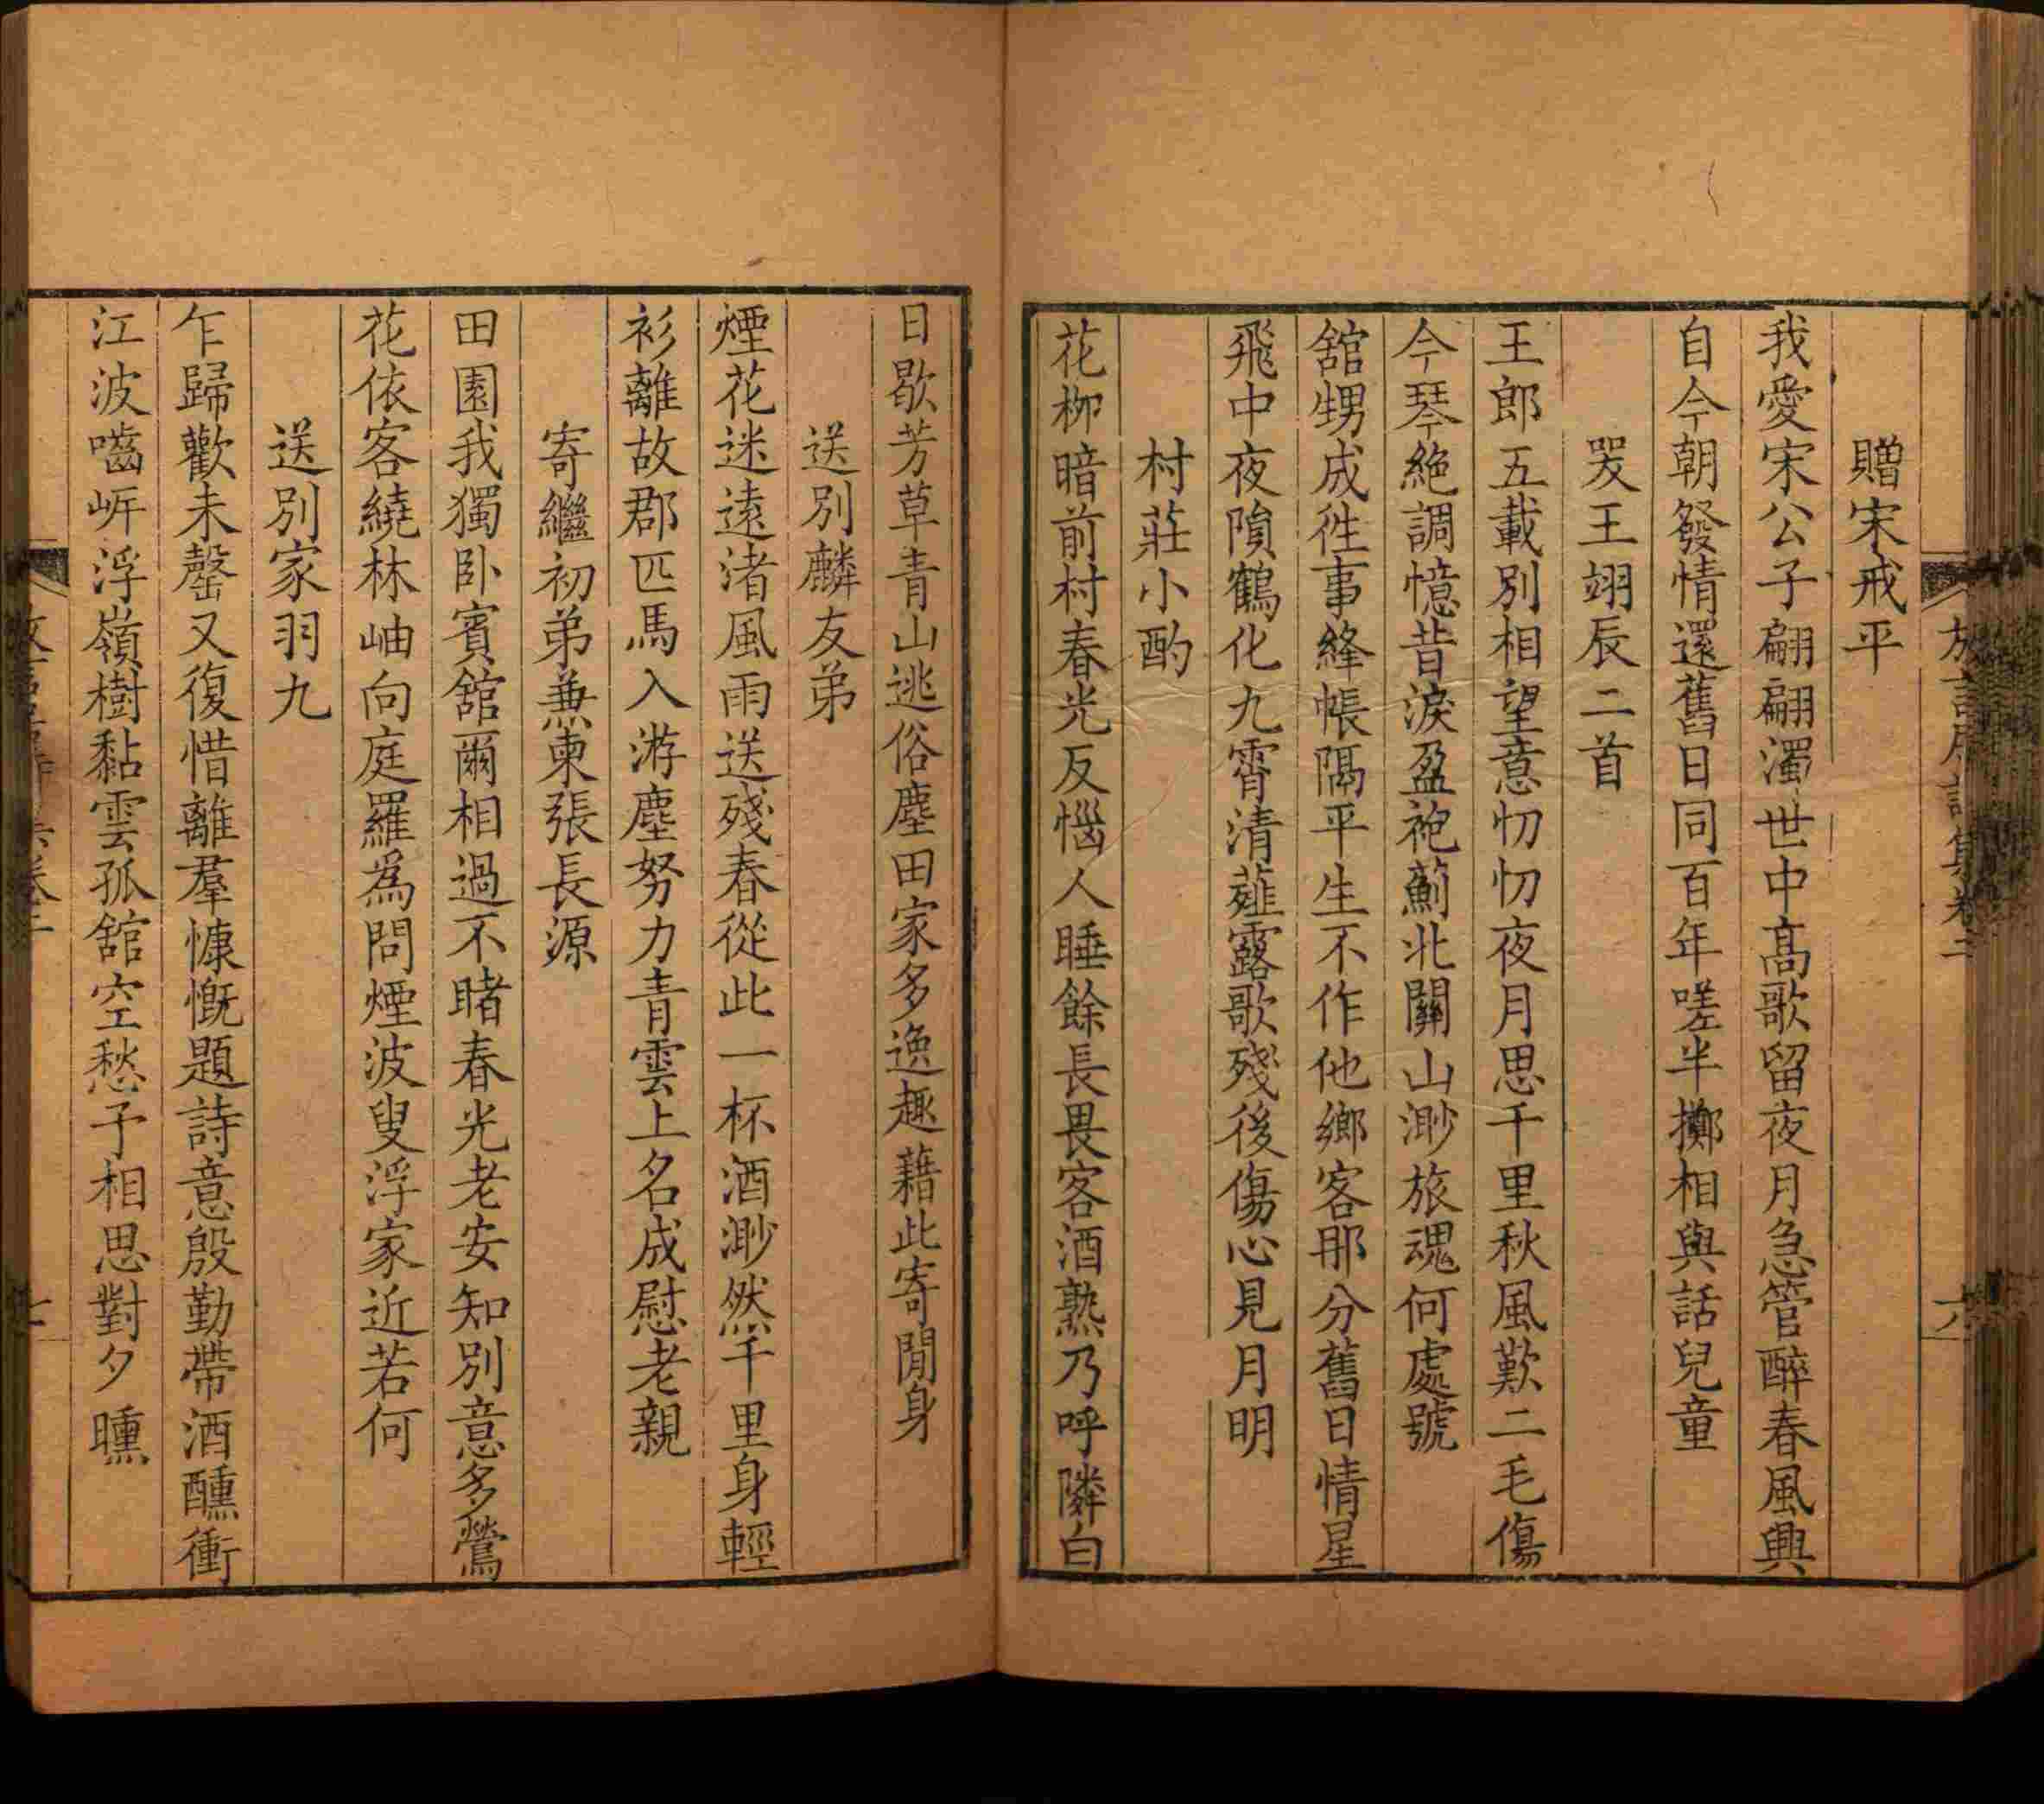 贈宋戒平
我愛宋公子翩翩濁世中高歌留夜月急管醉春風興
自今朝發情還舊日同百年嗟半擲相與話兒童
哭王翊辰二首
王郎五載別相望意忉忉夜月思千里秋風歎二毛傷
今琴絶調憶昔淚盈袍薊北關山渺旅魂何處號
舘甥成徃事絳帳隔平生不作他鄉客那分舊日情星
飛中夜隕鶴化九霄清薤露歌殘後傷心見月明
村莊小酌
花柳暗前村春光反惱人睡餘長畏客酒熟乃呼隣白
日歇芳草青山逃俗塵田家多逸趣藉此寄閒身
送別麟友弟
煙花迷遠渚風雨送殘春從此一杯酒渺然千里身輕
衫離故郡匹馬入游塵努力青雲上名成慰老親
寄繼初弟兼柬張長源
田園我獨卧賓舘爾相過不睹春光老安知別意多鶯
花依客繞林岫向庭羅為問煙波叟浮家近若何
送別家羽九
乍歸歡未罄又復惜離羣慷慨題詩意殷勤帶酒醺衝
江波嚙岍浮嶺樹黏雲孤舘空愁予相思對夕曛